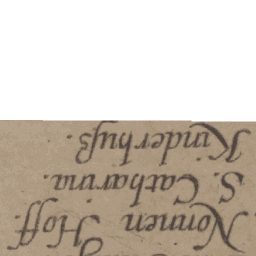 Nonnen Hoff.
S. Catharina.
Kinderhuß.